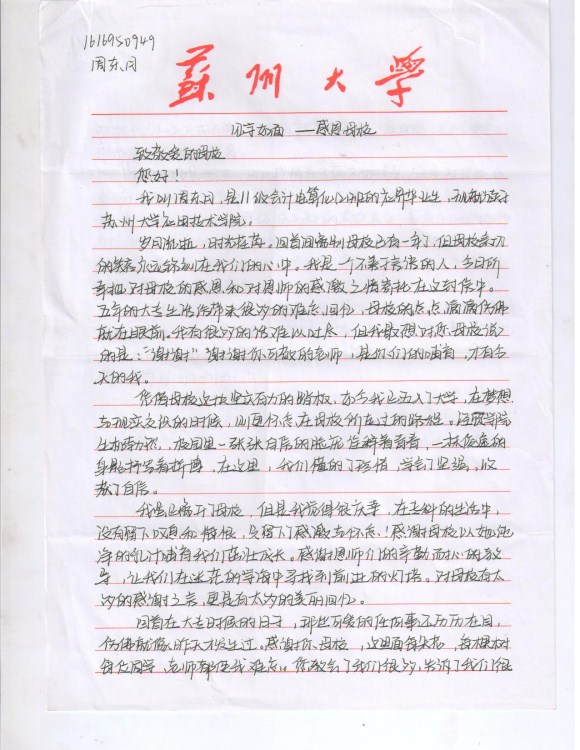 1616950949
周东月
蘇州大學
见字如面 ——感恩母校
致敬爱的母校
您好！
我叫周东月，是11级会计电算化的应届毕业生，现就读于
苏州大学应用技术学院。
岁月流逝，时光荏苒。回首回离别母校已有一年了，但母校亲切
的笑容永远铭刻在我们的心中。我是一个不善于言语的人，今日所
幸把对母校的感恩和对恩师的感激之情寄托在这封信中。
五年的大专生活带来很多的难忘回忆，母校的点点滴滴仿佛
就在眼前。我有很多的话难以吐尽，但我最想对您母校说
的是："谢谢"谢谢你可敬的老师，是他们的哺育，才有今
天的我。
凭借母校这块坚实有力的踏板，如今我已迈入了大学，在梦想
与现实交织的时候，则更怀念在母校所走过的路程。
校园里一张张自信的脸花，一抹抹
身影抒写着拼搏，在这里，我们懂的了珍惜，学会了坚强，收
获了自信。
我虽已离开了母校，但是我觉得很庆幸，在专科的生活中，
没有留下叹息和悔恨，只留下了感激与怀念！感谢母校以她纯
净的乳汁哺育我们茁壮成长。感谢恩师们的辛勤而耐心的教
导，让我们在迷茫的学海中寻找到前进的灯塔。对母校有太
多的感谢之言，更是有太多的美丽回忆。
回首在大专时候的日子，那些可爱的任何事不历历在目，
仿佛就像昨天才发生过。感谢你母校，这里面每朵花，每棵树
每位同学，老师都使我难忘。您教会了我们很多，告诉了我们很